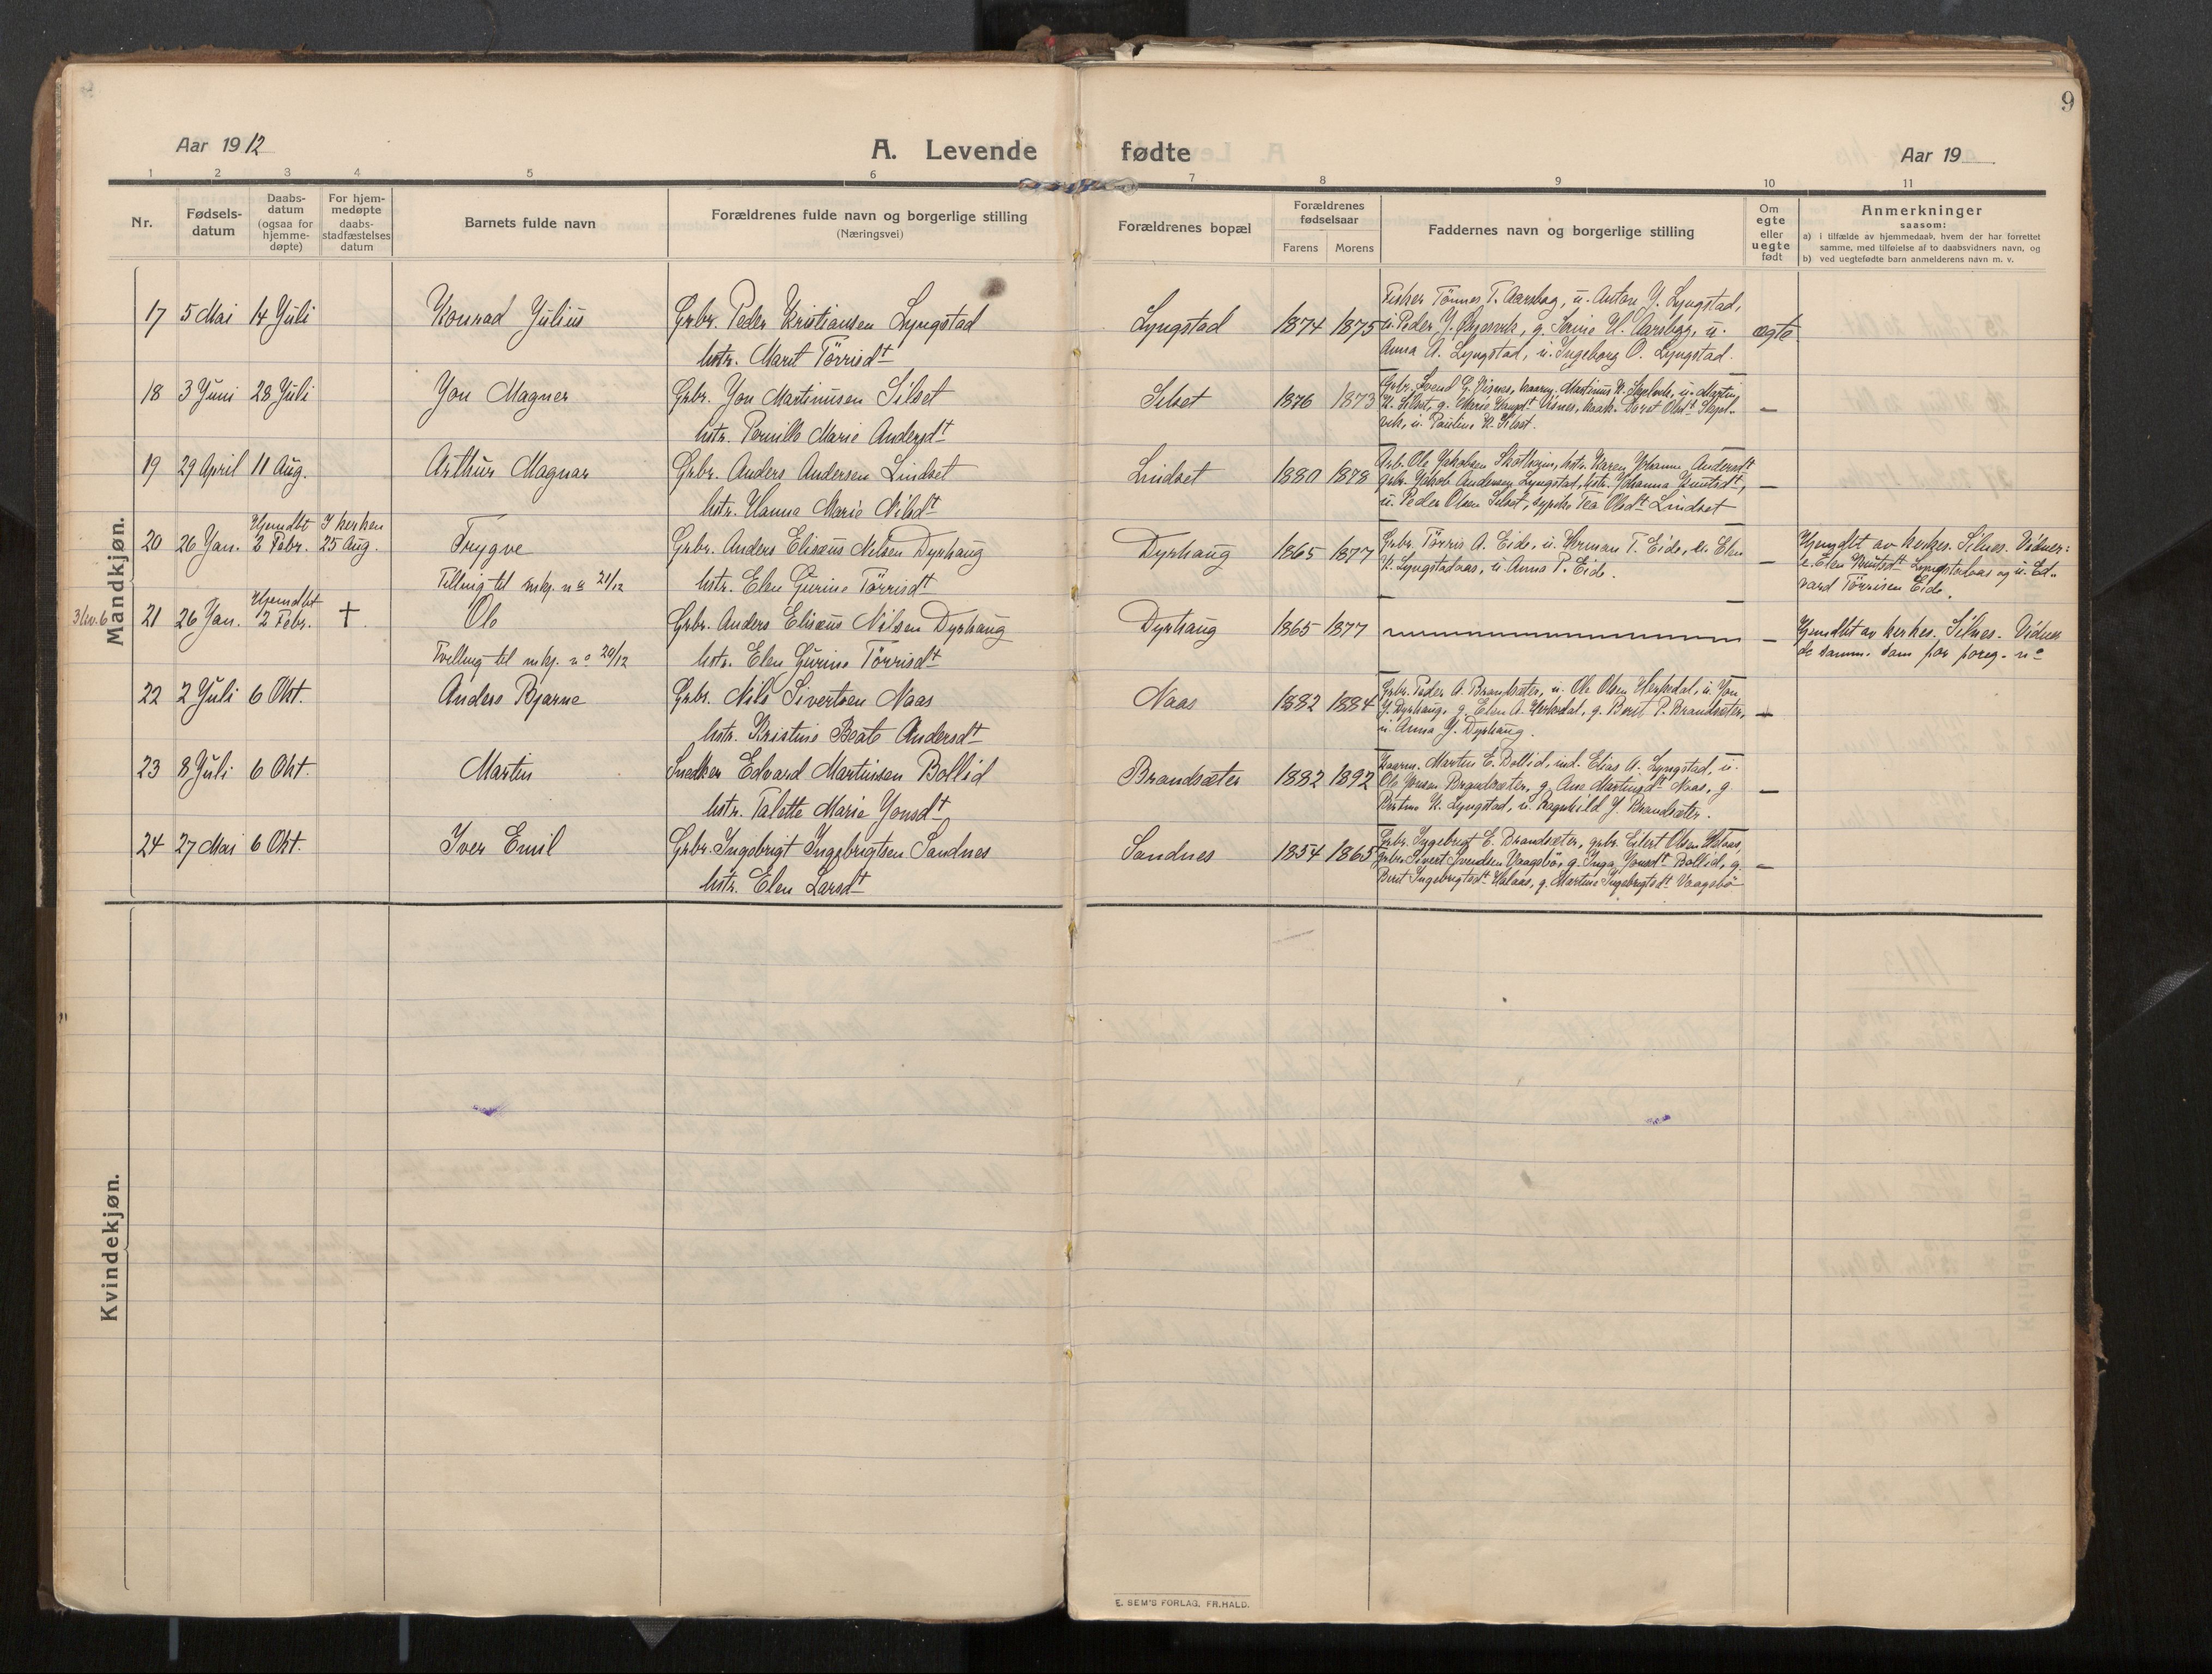 9
Aar 1912
A. Levende fødte
Aar 19
1 2 3 4 5 6 7 8 9 10 11
Nr.
Fødsels-
datum
Daabs-
datum
(ogsaa for
hjemme-
døpte)
For hjem-
medøpte
daabs-
stadfæstelses
datum
Barnets fulde navn
Forældrenes fulde navn og borgerlige stilling
(Næringsvei)
Forældrenes bopæl
Forældrenes
fødselsaar
Farens Morens
Faddernes navn og borgerlige stilling
Om
egte
eller
uegte
født
Anmerkninger
saasom:
a) i tilfælde av hjemmedaab, hvem der har forrettet
samme, med tilføielse af to daabsvidners navn, og
b) ved uegtefødte barn anmelderens navn m. v.
Mandkjøn.
17 5 Mai 14 Juli Konrad Julius Grbr. Peder Kristiansen Lyngstad
hstr. Marit Törrisdt
Lyngstad 1874 1875
Fisker Tönnes T. Aarsbog, u. Anton J. Lyngstad,
u. Peder J. g. Serine H. u.
Anna A. Lyngstad, u. Ingeborg O. Lyngstad.
ægte
18 3 Juni 28 Juli Jon Magner Grbr. Jon Martinusen Silset
hstr. Pernille Marie Andersdt
Silset 1876 1873
Grbr. Svend G. Visnes, kaarm. Martinus K. u. Martin
K. Silset, g. Marie Visnes, kaark. Beret Olsdt
vik, u. Pauline K. Silset.
—
19 29 April 11 Aug. Arthur Magnar Grbr. Anders Andersen Lindset
hstr. Hanna Marie Nilsdt
Lindset 1880 1878
Arb. Ole Jakobsen Skotheim, hstr. Karen Johanne Andersdt
grbr. Jakob Andersen Lyngstad, hstr. Johanna Knutsdt,
u. Peder Olsen Silset, sypike Tea Olsdt Lindset
—
20 26 Jan. Hjemdbt 2 Febr. I kirken 25 Aug. Trygve Grbr. Anders Elisæus Nilsen Dyrhaug
Tilling til mkj. no 21/12 hstr. Elen Gurine Törrisdt
Dyrhaug 1865 1877
Grbr. Törris A. Eide, u. Herman T. Eide, u. Elen
K. Lyngstadaas, u. Anna P. Eide.
—
Hjemdbt av kirkes. Silnes. Vidner:
u. Elen Knutsdt Lyngstadaas og u. Ed-
vard Törrisen Eide.
3 liv. 6 21 26 Jan. Hjemdbt 2 Febr. † Ole Grbr. Anders Elisæus Nilsen Dyrhaug
Tvilling til mkj. no 20/12 hstr. Elen Gurine Törrisdt
Dyrhaug 1865 1877 —
Hjemdbt av kirkes. Silnes. Vidner
de samm. som for foreg. no
22 2 Juli 6 Okt. Anders Bjarne Grbr. Nils Sivertsen Naas
hstr. Kristine Beate Andersdt
Naas 1882 1884
Grbr. Peder A. Brandsæter, u. Ole Olsen Heggdal, u. Jon
J. Dyrhaug, g. Elen A. g. Berit P. Brandsæter,
u. Anna J. Dyrhaug.
—
23 8 Juli 6 Okt. Martin Snedker Edvard Martinsen Bollid
hstr. Talette Marie Jonsdt
Brandsæter 1882 1892
Kaarm. Martin E. Bollid, ind. Elias A. Lyngstad, u.
Ole Jonsen Brandsæter, g. Ane Martinsdt Naas, g.
K. Lyngstad, u. Ragnhild J. Brandsæter.
—
24 27 Mai 6 Okt. Iver Emil Grbr. Ingebrigt Ingebrigtsen Sandnes
hstr. Elen Larsdt
Sandnes 1854 1865
Grbr. Ingebrigt E. Brandsæter, grbr. Eilert Olsen Halaas,
grbr. Sivert Svendsen Vaagsbö, g. Inga Jonsdt Bollid, g.
Berit Ingebrigtsdt Halaas, g. Martine Ingebrigtsdt Vaagsbö
—
Kvindekjøn.
E. SEM'S FORLAG, FR.HALD.